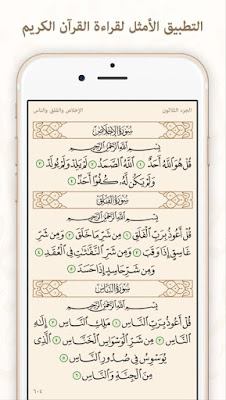 التطبيق الأمثل لقراءة القرآن الكريم
الجزء الثلاثون
الإخلاص والفلق والناس
سُورَةُ الإِخْلَاصِ
بِسْمِ اللَّهِ الرَّحْمَٰنِ الرَّحِيمِ
قُلْ هُوَ اللَّهُ أَحَدٌ ۝١ اللَّهُ الصَّمَدُ ۝٢ لَمْ يَلِدْ وَلَمْ يُولَدْ ۝٣
وَلَمْ يَكُن لَّهُ كُفُوًا أَحَدٌ ۝٤
سُورَةُ الفَلَقِ
بِسْمِ اللَّهِ الرَّحْمَٰنِ الرَّحِيمِ
قُلْ أَعُوذُ بِرَبِّ الْفَلَقِ ۝١ مِن شَرِّ مَا خَلَقَ ۝٢ وَمِن شَرِّ
غَاسِقٍ إِذَا وَقَبَ ۝٣ وَمِن شَرِّ النَّفَّاثَاتِ فِي الْعُقَدِ ۝٤
وَمِن شَرِّ حَاسِدٍ إِذَا حَسَدَ ۝٥
سُورَةُ النَّاسِ
بِسْمِ اللَّهِ الرَّحْمَٰنِ الرَّحِيمِ
قُلْ أَعُوذُ بِرَبِّ النَّاسِ ۝١ مَلِكِ النَّاسِ ۝٢ إِلَٰهِ
النَّاسِ ۝٣ مِن شَرِّ الْوَسْوَاسِ الْخَنَّاسِ ۝٤ الَّذِي
يُوَسْوِسُ فِي صُدُورِ النَّاسِ ۝٥
مِنَ الْجِنَّةِ وَالنَّاسِ ۝٦
٦٠٤